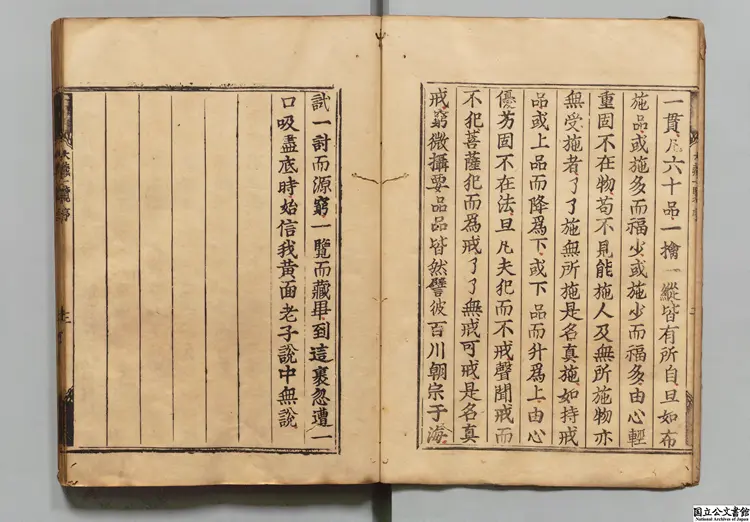 一貫凡六十品一擒一縱皆有所自旦如布
施品或施多而福少或施少而福多由心輕
重固不在物苟不見能施人及無所施物亦
無受施者了了施無所施是名真施如持戒
品或上品而降爲下或下品而升爲上由心
優劣固不在法旦凡夫犯而不戒聲聞戒而
不犯菩薩犯而爲戒了了無戒可戒是名真
戒窮微攝要品品皆然譬彼百川朝宗于海
試一討而源窮一覽而藏畢到這裏忽遭一
口吸盡底時始信我黃面老子說中無說
大藏一覽序
国立公文書館
National Archives of Japan